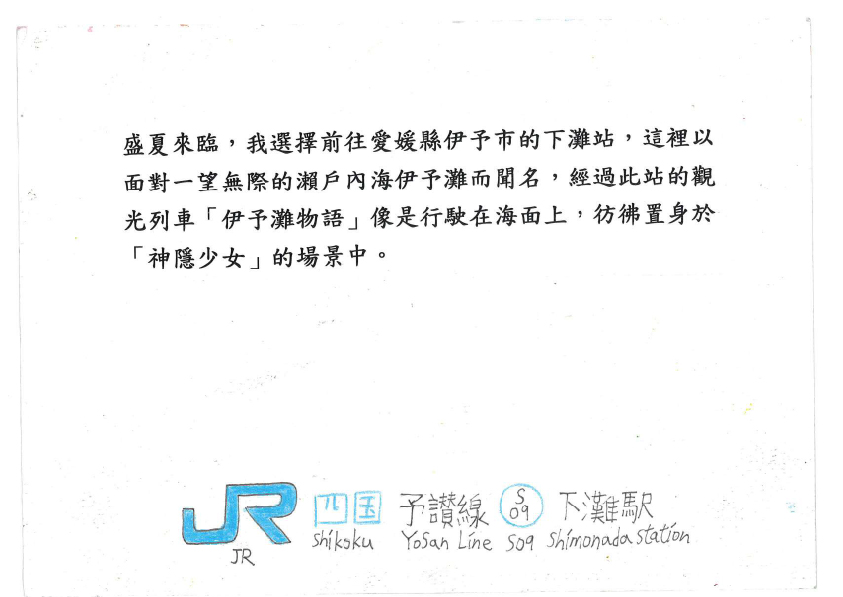 盛夏來臨，我選擇前往愛媛縣伊予市的下灘站，這裡以
面對一望無際的瀨戶內海伊予灘而聞名，經過此站的觀
光列車「伊予灘物語」像是行駛在海面上，彷彿置身於
「神隱少女」的場景中。
JR 四国 予讃線 S09 下灘駅
JR Shikoku Yosan Line S09 Shimonada Station